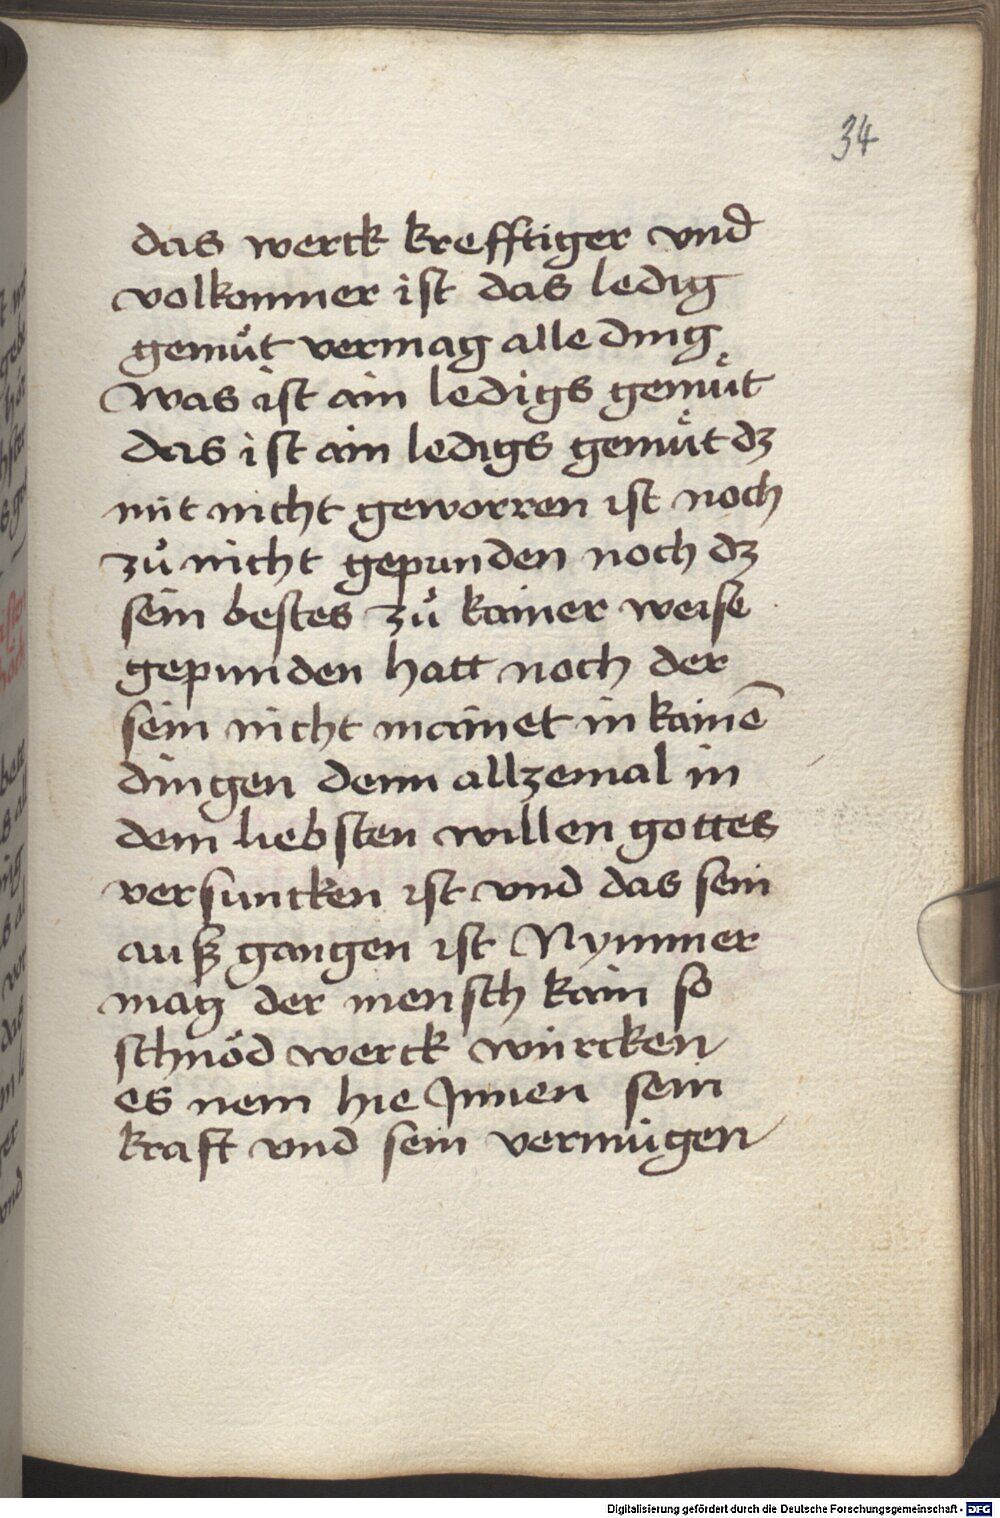 34
das werck krefftiger vnd
volkommer ist das ledig
gemuͤt vermag alle ding
Was ist ain ledigs gemuͤt
das ist ain ledigs gemuͤt dz
mit nicht geworren ist noch
zuͦ nicht gepunden noch dz
sein bestes zuͦ kainer weise
gepunden hatt noch der
sein nicht mainet in kainē
dingen denn allzemal in
dem liebsten willen gottes
versuncken ist vnd das sein
auß gangen ist Nymmer
mag der mensch kain so
schnöd werck würcken
es nem hie Jnnen sein
kraft vnd sein vermügen
Digitalisierung gefördert durch die Deutsche Forschungsgemeinschaft - DFG